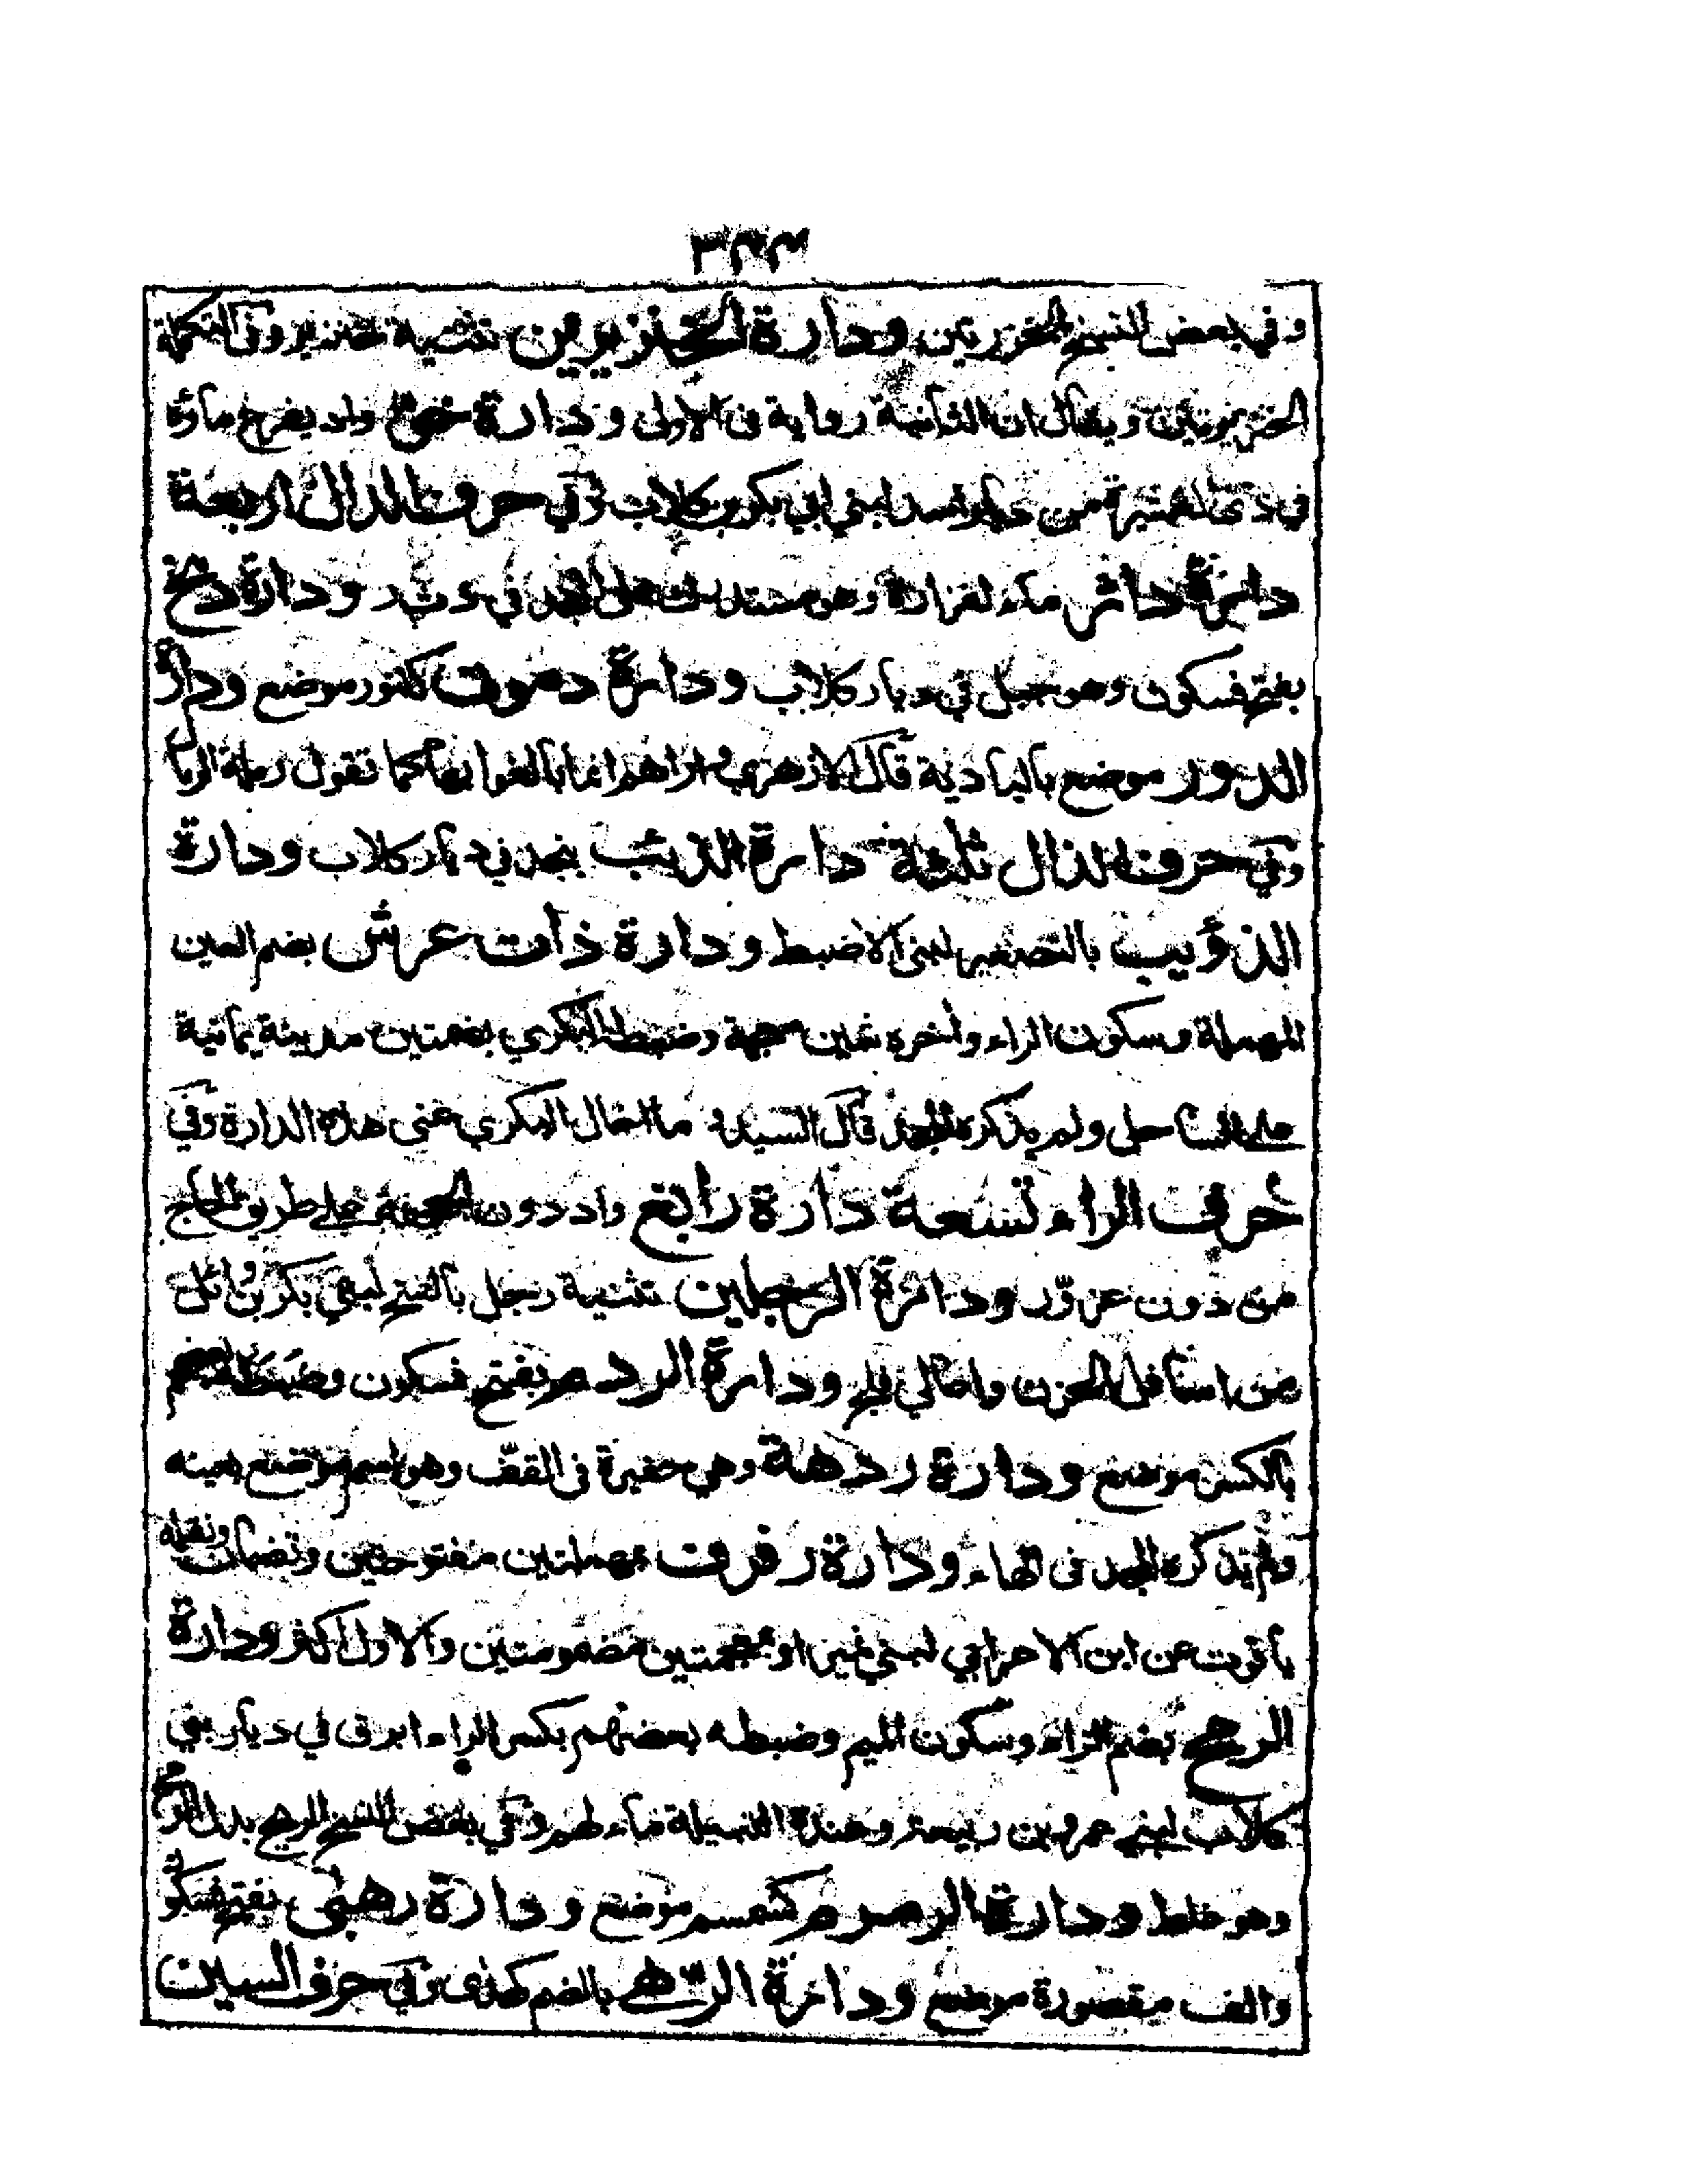 ٣٣٣
وفي بعض النسخ الخنزرتين ودارة الخنزيرين تثنية خنزير وفى التكملة
الخنزيرتين ويقال ان الثانية رواية فى الاولى ودارة خو واد يفرغ ماؤه
في ذى العشيرة من ديار اسد لبني ابي بكر بن كلاب وفي حرف الدال اربعة
دارة داثر ماء لفزارة وهو مستدرك على المجد في د ث ر ودارة دمخ
بفتح فسكون وهو جبل في ديار كلاب ودارة دمون كتنور موضع ودارة
الدور موضع بالبادية قال الازهري واراهم انما بالغوا بها كما تقول رملة الرمال
وفي حرف الذال ثلثة دارة الذئب بنجد في ديار كلاب ودارة
الذؤيب بالتصغير لبني الاضبط ودارة ذات عرش بضم العين
المهملة وسكون الراء وآخره شين معجمة وضبطه البكري بضمتين مدينة يمانية
على الساحل ولم يذكره المجد قال السيد وما اخال البكري عنى هذه الدارة وفي
حرف الراء تسعة دارة رابغ واد دون الجحفة على طريق الحاج
من دون عزور ودارة الرجلين تثنية رجل بالفتح لبني بكر بن وائل
من اسافل الحزن واعالي فلج ودارة الردم بفتح فسكون وضبطه بعضهم
بالكسر موضع ودارة ردهة وهي حفيرة فى القف وهو اسم موضع بعينه
ولم يذكره المجد فى الهاء ودارة رفرف بمهملتين مفتوحتين وتضمان ونقله
ياقوت عن ابن الاعرابي لبني نمير او بمعجمتين مضمومتين والاول اكثر ودارة
الرمح بضم الراء وسكون الميم وضبطه بعضهم بكسر الراء ابرق في ديار بني
كلاب لبني عمرو بن ربيعة وعنده البتيلة ماء لهم وفي بعض النسخ الريح بدل الرمح
وهو غلط ودارة الرمرم كسمسم موضع ودارة رهبى بفتح فسكون
والف مقصورة موضع ودارة الرهى بالضم كهدى وفي حرف السين